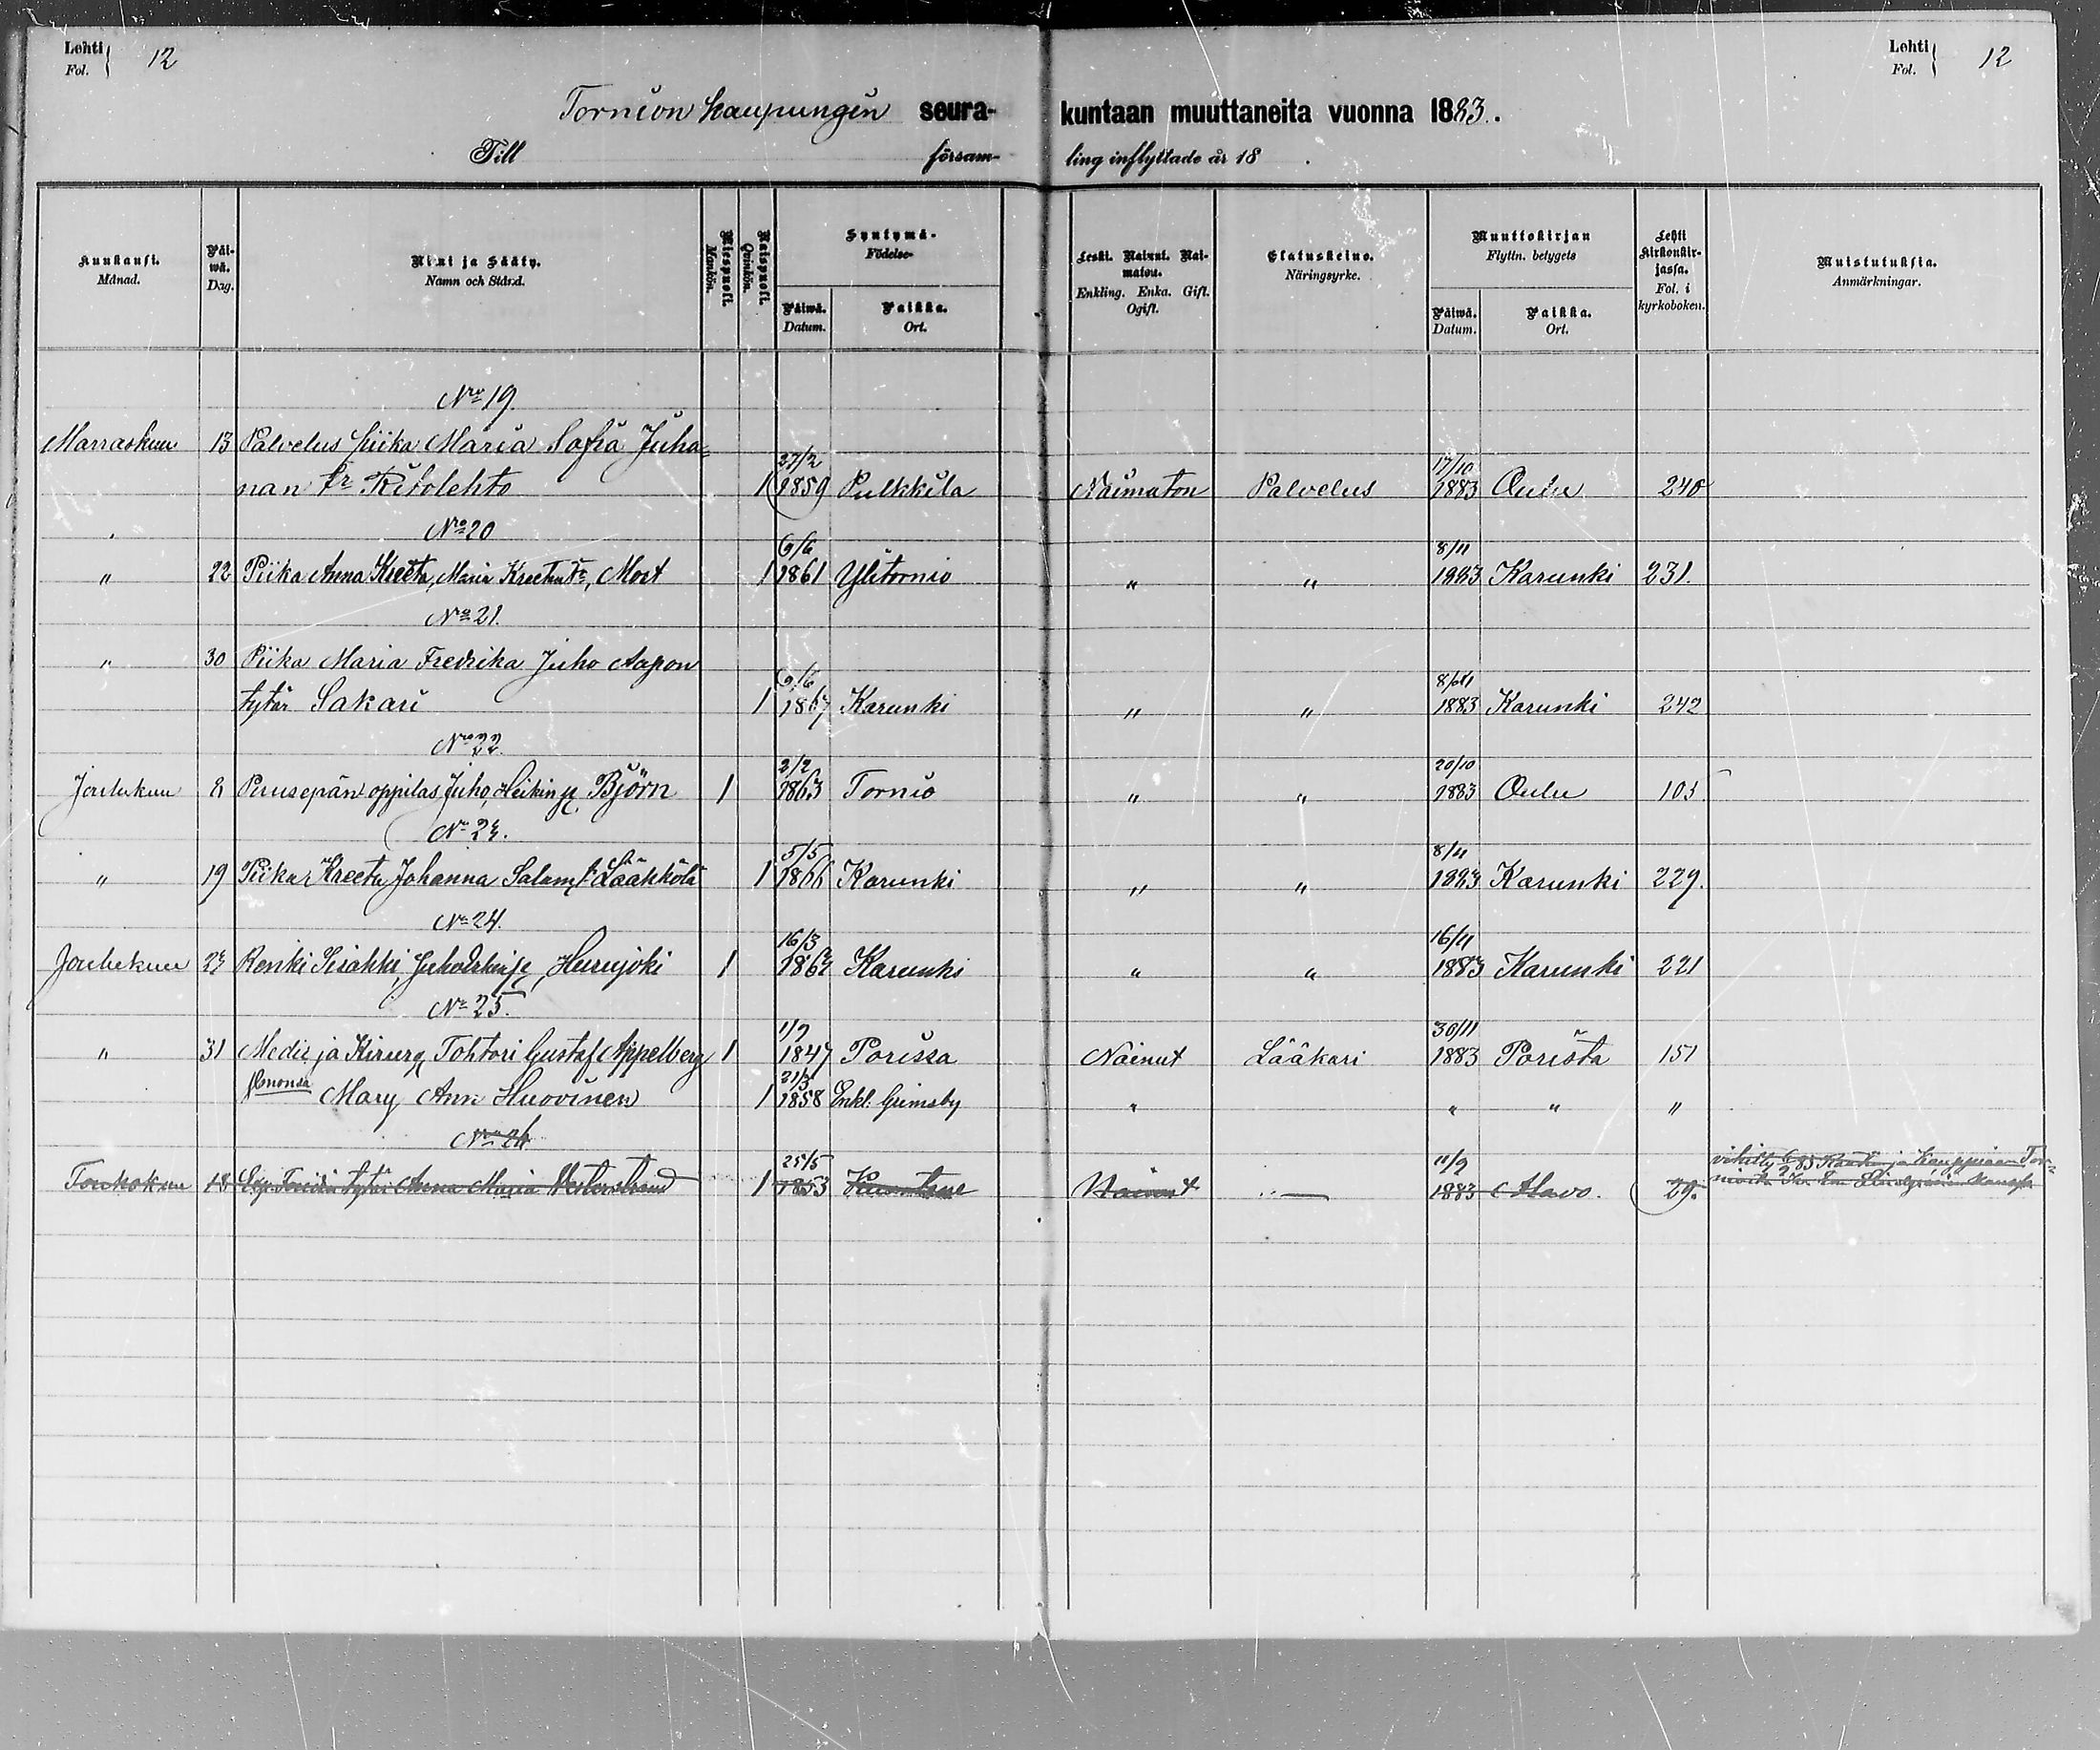 Lehti Fol. 12
Lehti Fol. 12
Tornion kaupungin seura- kuntaan muuttaneita vuonna 1883.
Till församling inflyttade år 18 .
Kuukausi. Månad.
Päiwä. Dag.
Nimi ja Sääty. Namn och Stånd.
Miespuoli. Mankön.
Naispuoli. Qvinkön.
Syntymä- Födelse-
Päiwä. Datum.
Paikka. Ort.
Leski. Nainut. Naimaton. Enkling. Enka. Gift. Ogift.
Elatuskeino. Näringsyrke.
Muuttokirjan Flyttn. betygets
Päiwä. Datum.
Paikka. Ort.
Lehti Kirkonkirjassa. Fol. i kyrkoboken.
Muistutuksia. Anmärkningar.
No 19.
Marraskuu 13 Palvelus piika Maria Sofia Juha=
nan tr Ritolehto 1 27/2 1859 Pulkkila Naimaton Palvelus 17/10 1883 Oulu 240
No 20
" 22 Piika Anna Kreeta, Maria Kreetan tr, Mort 1 6/6 1861 Ylitornio " " 8/11 1883 Karunki 231.
No 21.
" 30 Piika Maria Fredrika Juho Aapon
tytär Sakari 1 9/6 1867 Karunki " " 1883 Karunki 242
No 22.
Joulukuu Juho, Heikin Björn 1 2/2 1863 Tornio " " 20/10 1883 Oulu 105
No 23.
" 19 Kreeta Johanna Salam. tr Lääkkölä 1 5/5 1866 Karunki " " 8/11 1883 Karunki 229.
No 24.
Joulukuu 23 Renki Hurujoki 1 16/3 1862 Karunki " " 16/11 1883 Karunki 221
No 25.
" 31 Medic ja Kirurg. Tohtori Gustaf Appelberg 1 1/9 1847 Porissa Nainut Lääkäri 30/11 1883 Porista 151
Vmonsa Mary Ann Huovinen 1 21/3 1858 Enkl. Grimsby " " " "
No 26
Toukokuu 18 tytär Anna Maria Westerstrand 1 25/5 1853 Nainut " — 11/9 1883 Alavo. 29.
vihitty